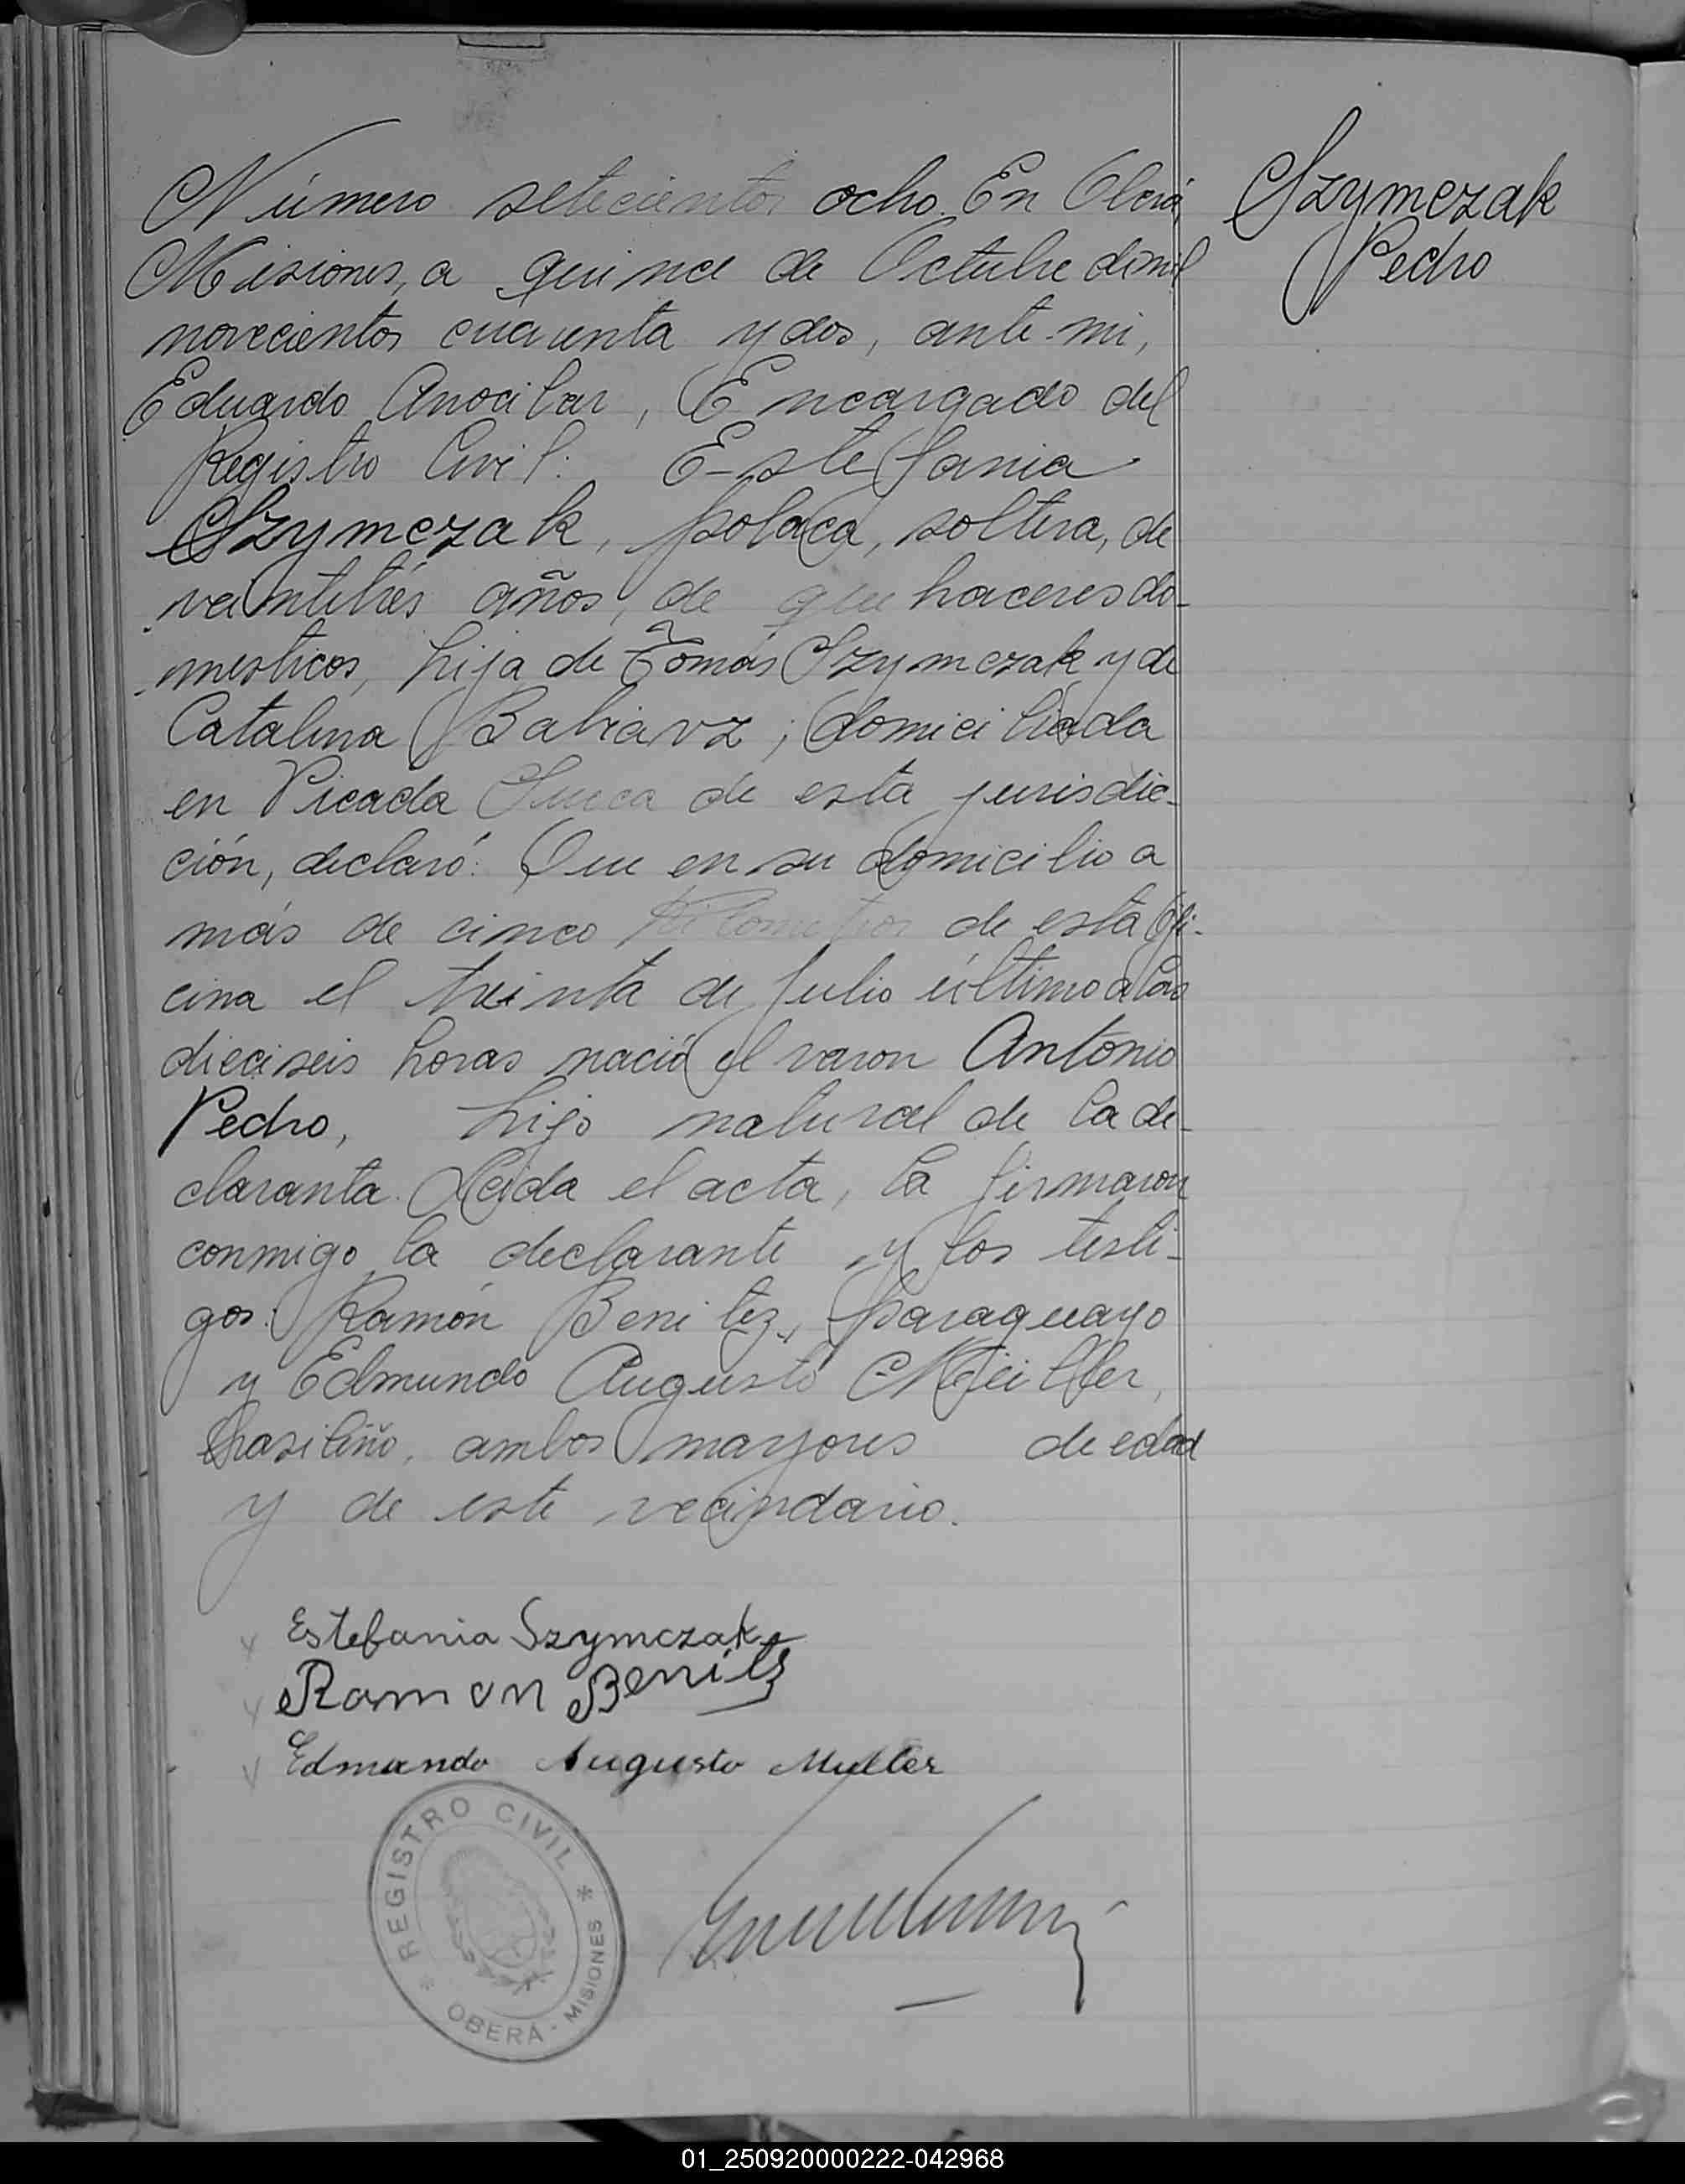 Número setecientos ocho. En Oberá,
Misiones, a quince de Octubre de mil
novecientos cuarenta y dos, ante mi,
Eduardo Anocibar, Encargado del
Registro Civil: Estefania
Szymczak, polaca, soltera, de
veintitrés años, de quehaceres do-
mesticos, hija de Tomás Szymczak y de
Catalina ; domiciliada
en Picada Sueca de esta jurisdic-
ción, declaró: Que en su domicilio a
más de cinco kilometros de esta ofi-
cina el treinta de Julio último a las
dieciseis horas nació el varon Antonio
Pedro, hijo natural de la de-
claranta. Leida el acta, la firmaron
conmigo la declarante y los testi-
gos: Ramón Benitez, paraguayo
y Edmundo Augusto Müller,
brasileño, ambos mayores de edad
y de este vecindario.
Szymczak
Pedro
Estefania Szymczak
Ramon Benitz
Edmundo Augusto Muller
* REGISTRO CIVIL *
OBERÁ - MISIONES
01_250920000222-042968